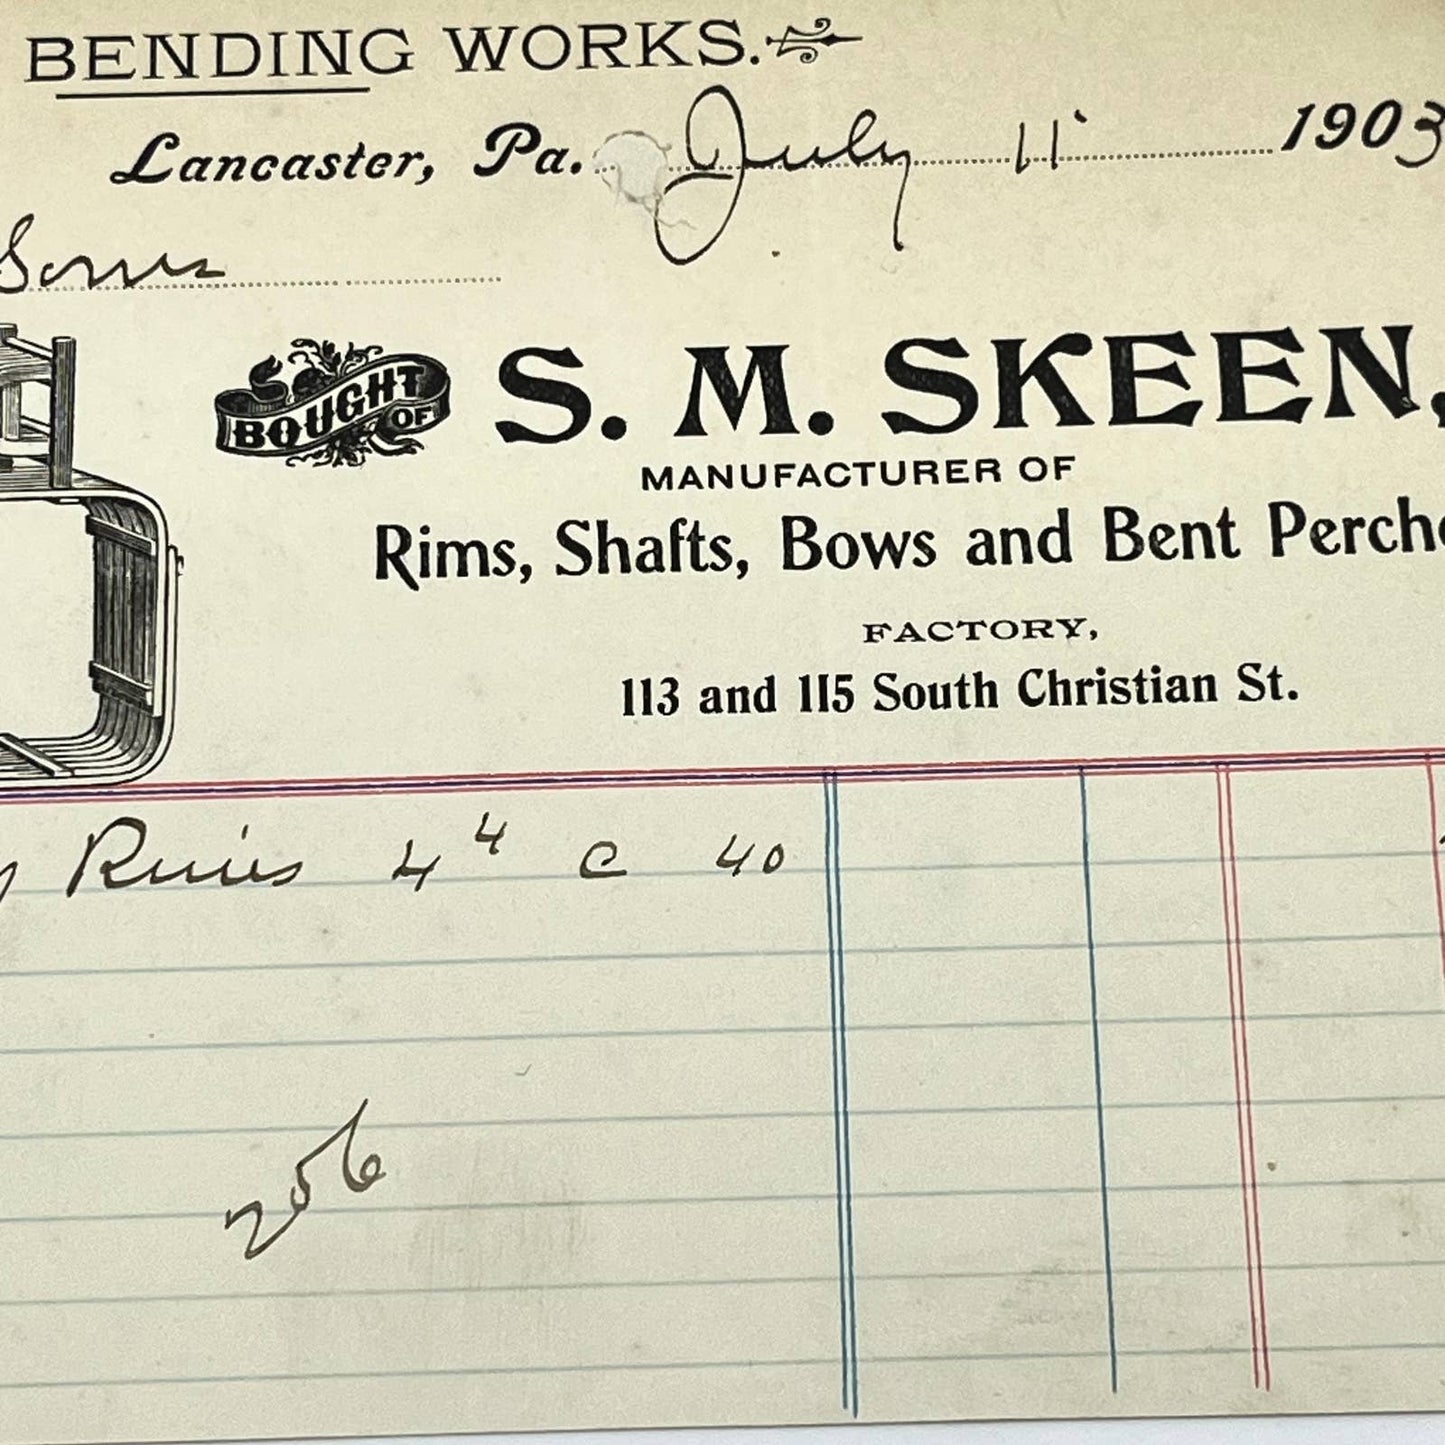 BENDING WORKS.
Lancaster, Pa. July 11 1903
Sons
BOUGHT OF S. M. SKEEN,
MANUFACTURER OF
Rims, Shafts, Bows and Bent Perche
FACTORY,
113 and 115 South Christian St.
Rims 4 4 c 40
256